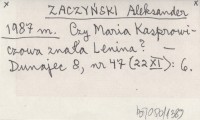 ZACZYŃSKI Aleksander
1987 m. Czy Maria Kasprowi-
czowa znała Lenina? —
Dunajec 8, nr 47 (22 XI): 6.